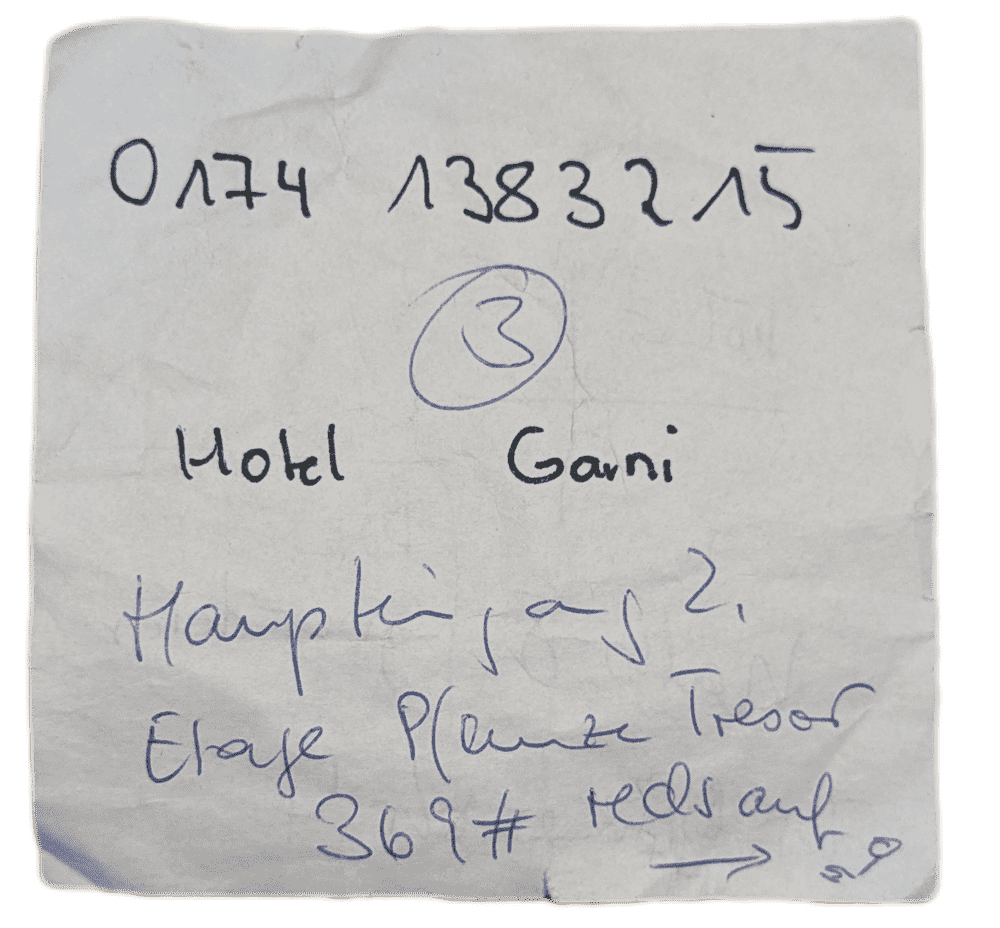 0174 1383215
3
Hotel Garni
Haupteingang 2.
Etage Pflanze Tresor
369# rechts auf
→